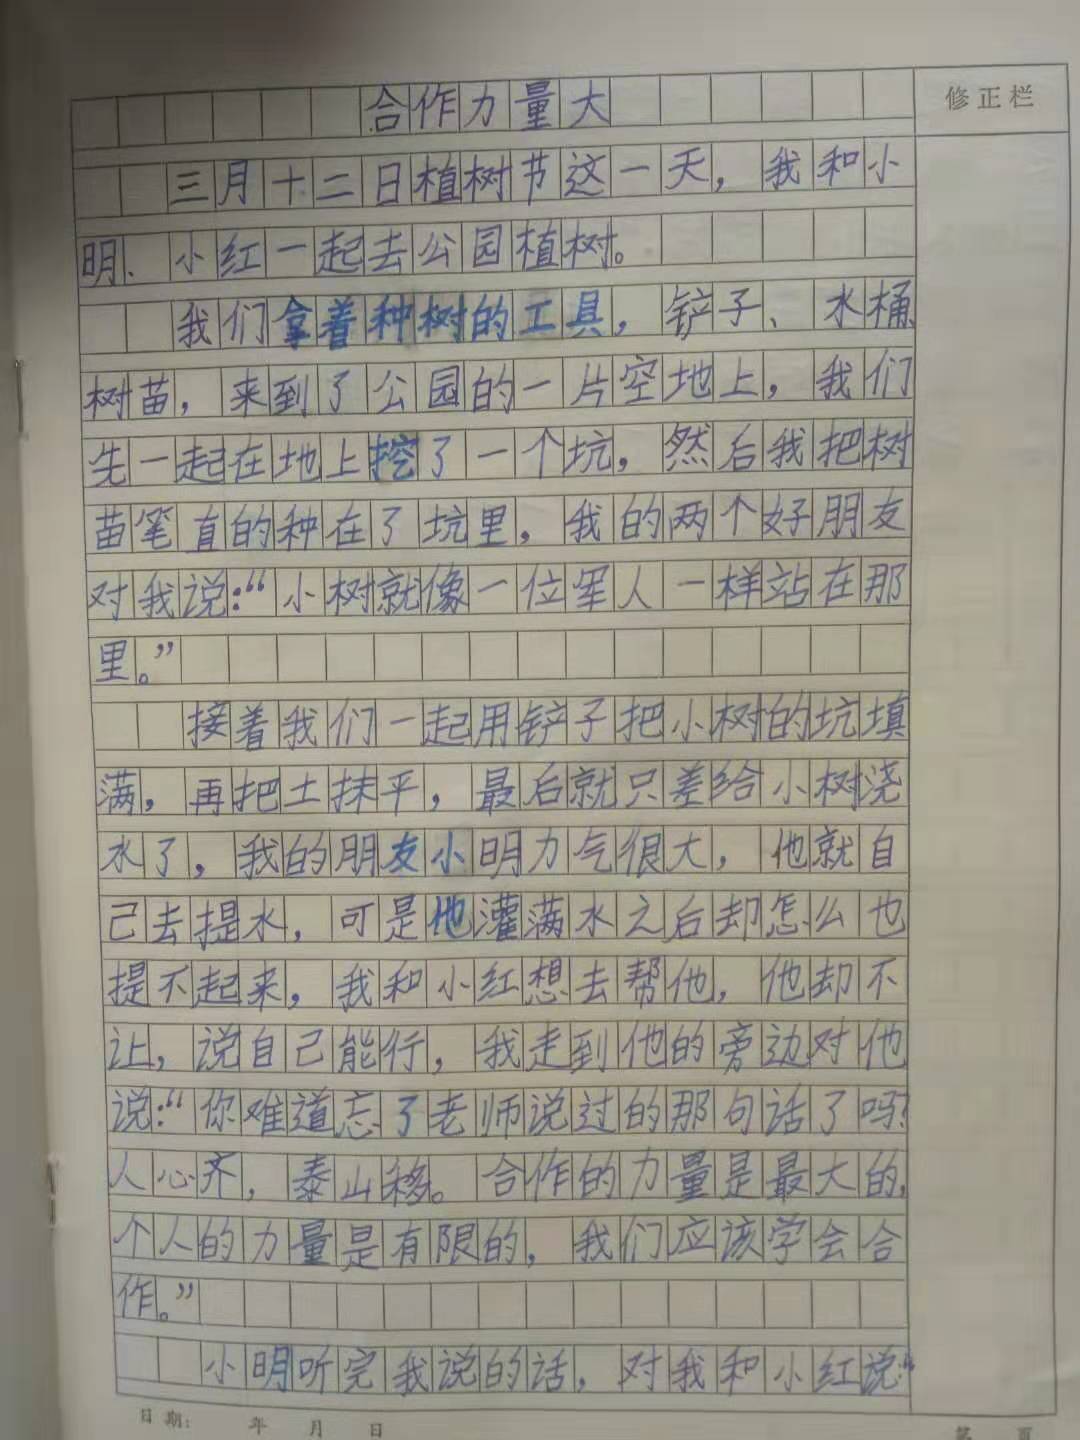 合作力量大
修正栏
三月十二日植树节这一天，我和小
明、小红一起去公园植树。
我们拿着种树的工具，铲子、水桶、
树苗，来到了公园的一片空地上，我们
先一起在地上挖了一个坑，然后我把树
苗笔直的种在了坑里，我的两个好朋友
对我说：“小树就像一位军人一样站在那
里。”
接着我们一起用铲子把小树的坑填
满，再把土抹平，最后就只差给小树浇
水了，我的朋友小明力气很大，他就自
己去提水，可是他灌满水之后却怎么也
提不起来，我和小红想去帮他，他却不
让，说自己能行，我走到他的旁边对他
说：“你难道忘了老师说过的那句话了吗？
人心齐，泰山移。合作的力量是最大的，
个人的力量是有限的，我们应该学会合
作。”
小明听完我说的话，对我和小红说：“
日期： 年 月 日
第 页